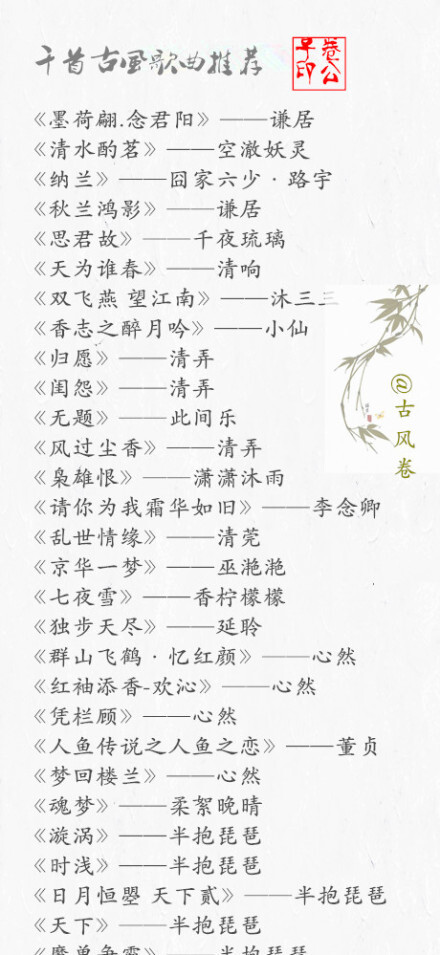 千首古风歌曲推荐
卷公
子印
《墨荷翩.念君阳》——谦居
《清水酌茗》——空澈妖灵
《纳兰》——囧家六少·路宇
《秋兰鸿影》——谦居
《思君故》——千夜琉璃
《天为谁春》——清响
《双飞燕 望江南》——沐三三
《香志之醉月吟》——小仙
《归愿》——清弄
《闺怨》——清弄
《无题》——此间乐
《风过尘香》——清弄
《枭雄恨》——潇潇沐雨
《请你为我霜华如旧》——李念卿
《乱世情缘》——清莞
《京华一梦》——巫滟滟
《七夜雪》——香柠檬檬
《独步天尽》——延聆
《群山飞鹤·忆红颜》——心然
《红袖添香-欢沁》——心然
《凭栏顾》——心然
《人鱼传说之人鱼之恋》——董贞
《梦回楼兰》——心然
《魂梦》——柔絮晚晴
《漩涡》——半抱琵琶
《时浅》——半抱琵琶
《日月恒曌 天下贰》——半抱琵琶
《天下》——半抱琵琶
《魔兽争霸》——半抱琵琶
@古风卷